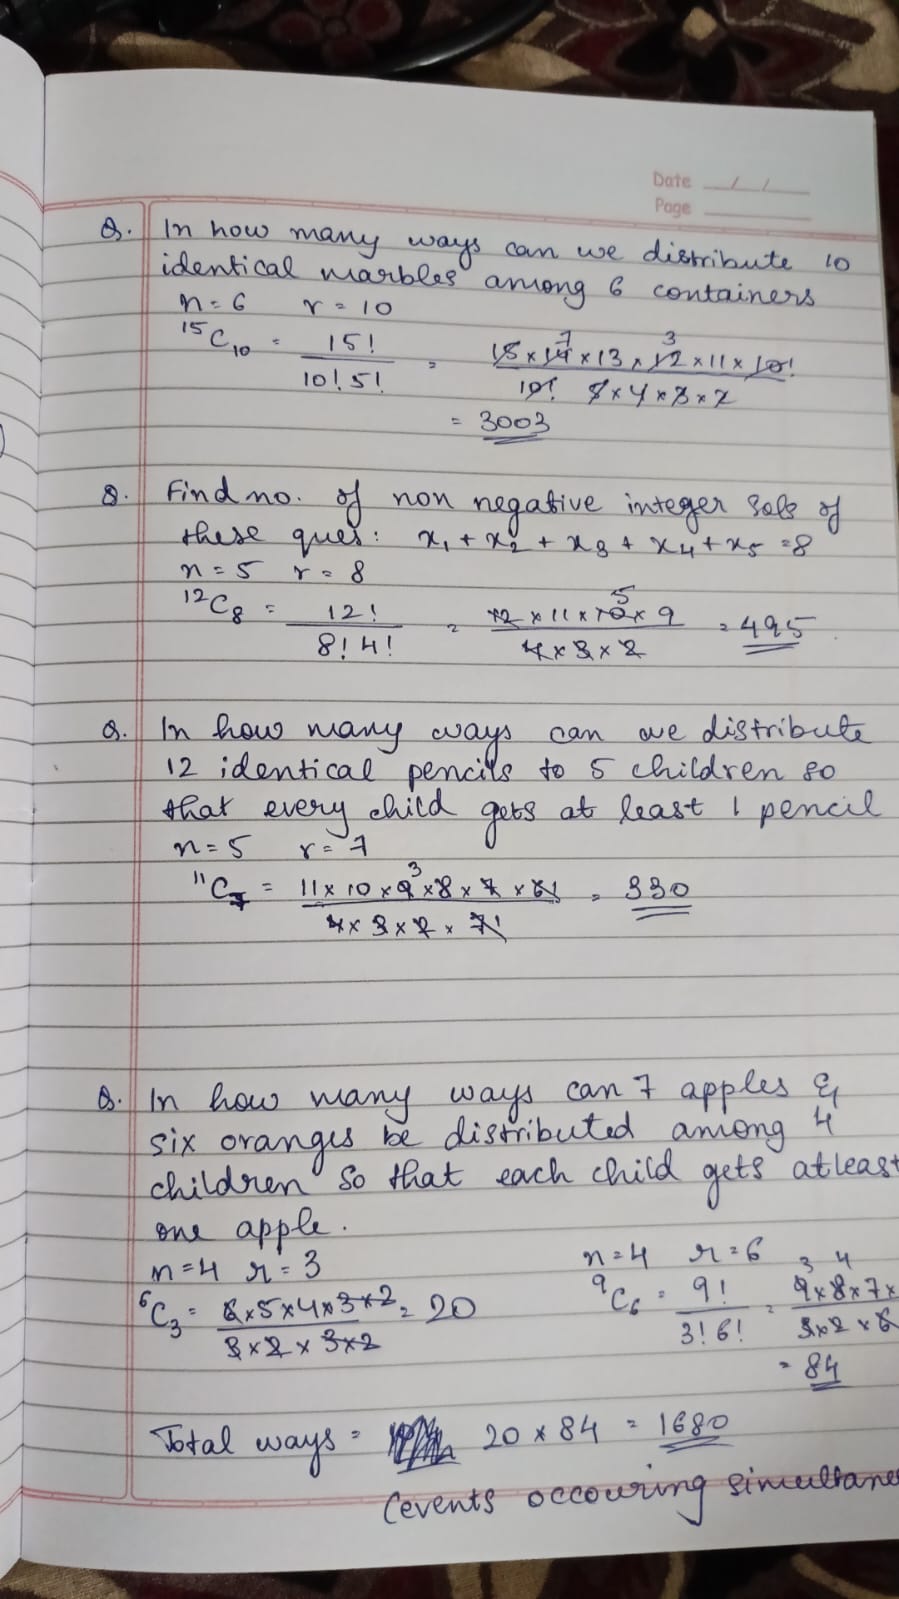 Date / /
Page
Q. In how many ways can we distribute 10
identical marbles among 6 containers
n=6 r=10
15C10 = 15! / 10! 5! = 15×14×13×12×11×10! / 10! 5×4×3×2
7 3
= 3003
Q. Find no. of non negative integer sols of
these ques: x1+x2+x3+x4+x5=8
n=5 r=8
12C8 = 12! / 8! 4! = 12×11×10×9 / 4×3×2 = 495
5
Q. In how many ways can we distribute
12 identical pencils to 5 children so
that every child gets at least 1 pencil
n=5 r=7
11C7 = 11×10×9×8×7× / 4×3×2×7! = 330
3
Q. In how many ways can 7 apples &
six oranges be distributed among 4
children so that each child gets atleast
one apple.
n=4 r=3 n=4 r=6
6C3 = 6×5×4×3×2 / 3×2×3×2 = 20 9C6 = 9! / 3! 6! = 9×8×7× / 3×2×6
3 4
= 84
Total ways = 20×84 = 1680
(events occouring simultane